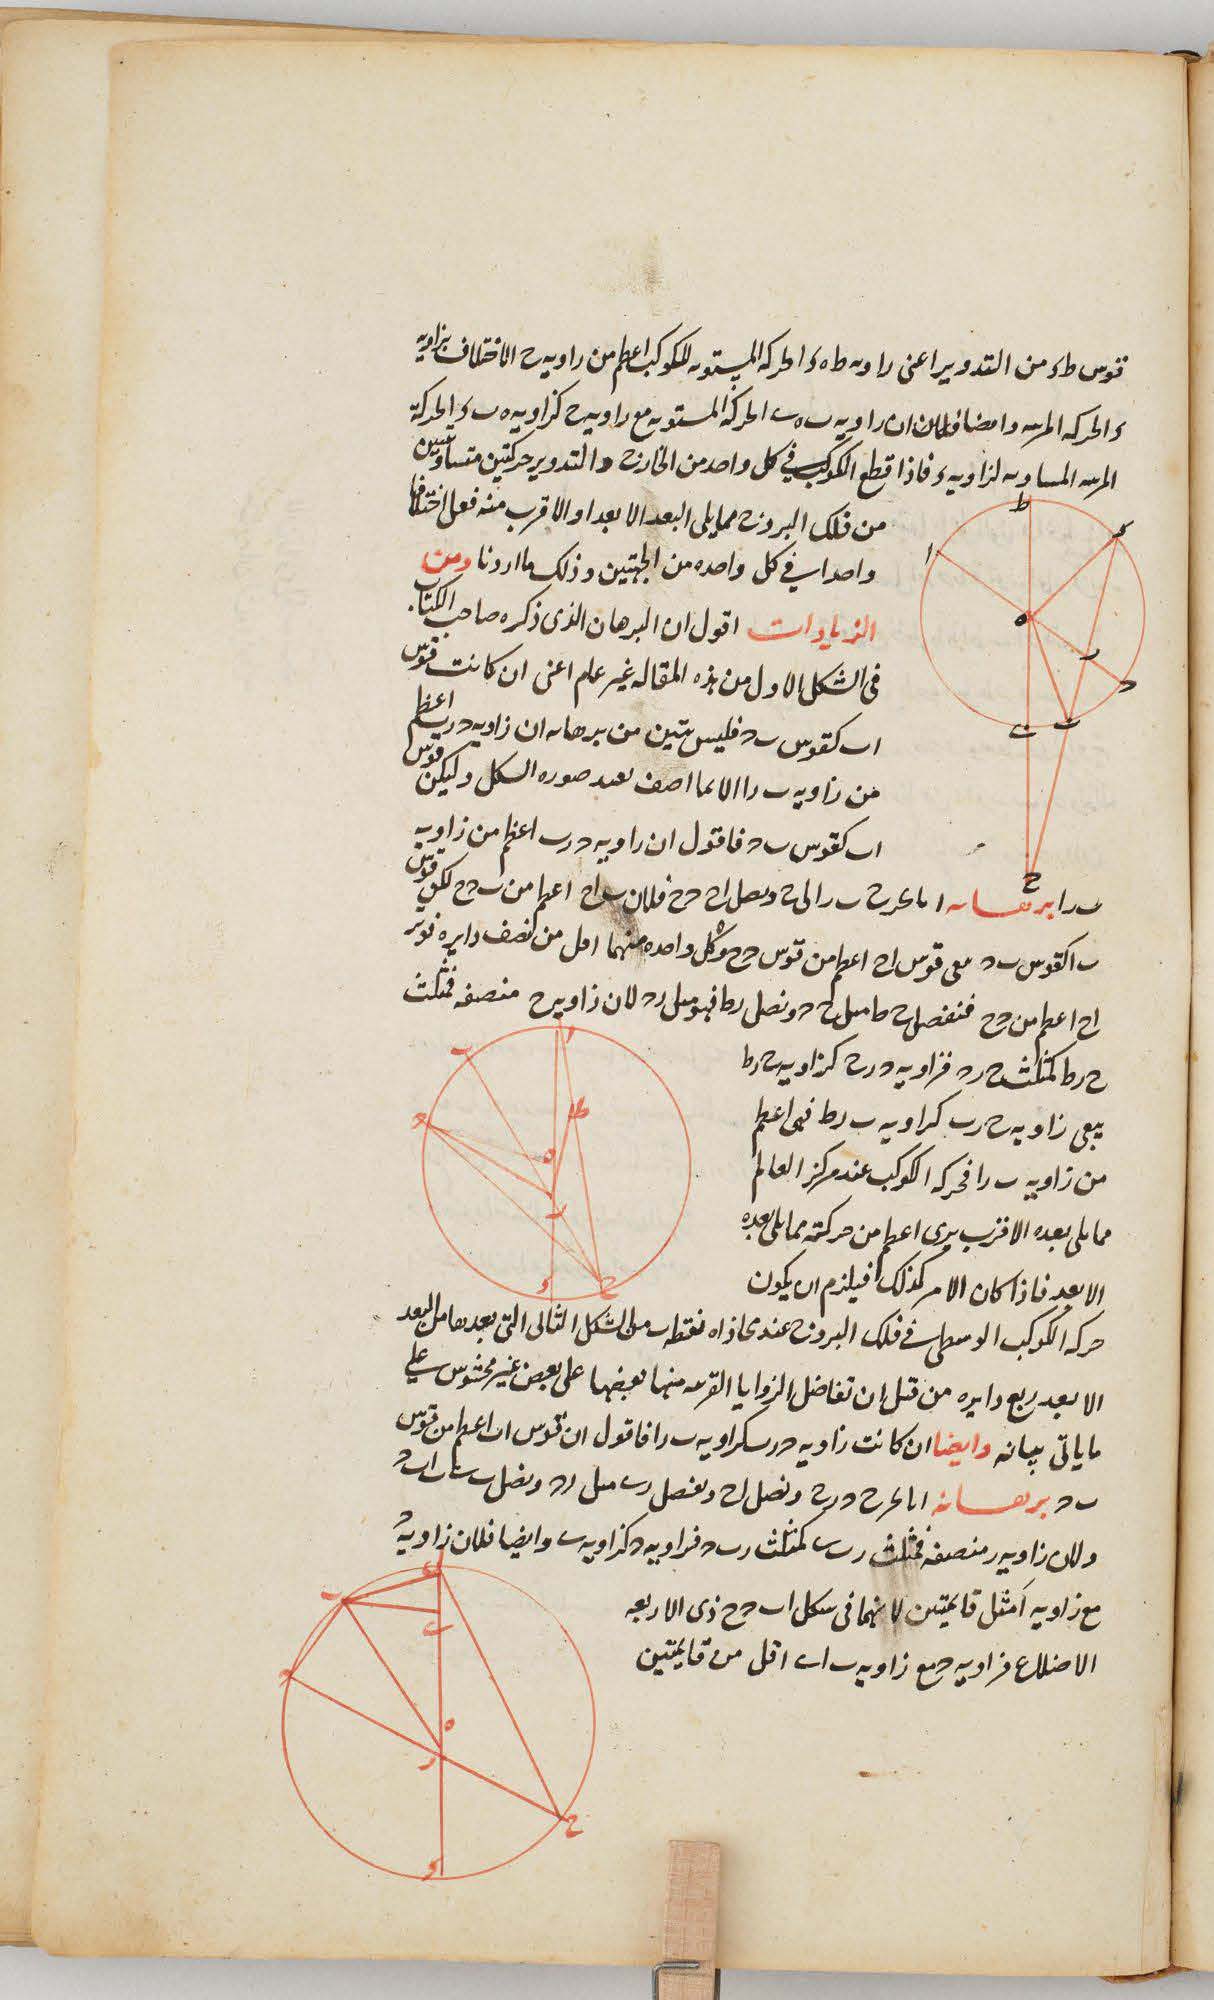 قوس ط ء من التدوير اعنى زاويه ط ه ء الحركه المستويه للكوكب اعظم من زاويه ح الاختلاف بزاويه
ء الحركه المرئيه وايضا فلان ان زاويه ب ه ى الحركه المستويه مع زاويه ح كزاويه ه ب ء الحركة
المرئيه المساويه لزاويه ء فاذا قطع الكوكب فى كل واحد من الخارج والتدوير حركتين متساويتين
من فلك البروج مما يلى البعد الابعد او الاقرب منه فعل اختلافا
واحدا فى كل واحده من الجهتين وذلك ما اردنا ومن
الزيادات اقول ان البرهان الذى ذكره صاحب الكتاب
فى الشكل الاول من هذه المقاله غير عام اعنى ان كانت قوس
اب كقوس ب د فليس يتبين من برهانه ان زاويه د ر ب اعظم
من زاويه ب ر ا الا بما اصف بعد صوره الشكل وليكن قوس
اب كقوس ب د فاقول ان زاويه د ر ب اعظم من زاويه
ب ر ا برهانه انا نخرج ب ر الى ح ونصل اح د ح فلان ب اح اعظم من ب د ح لكن قوس
ب ا كقوس ب د يبقى قوس اح اعظم من قوس د ح وكل واحده منهما اقل من نصف دايره فوتر
اح اعظم من د ح فنفصل ح ط مثل ح د ونصل ر ط فهو مثل ر د لان زاويه ح منصفه فمثلث
ح ر ط كمثلث ح ر د فزاويه د ر ح كزاويه ح ر ط
يبقى زاويه د ر ب كزاويه ب ر ط فهى اعظم
من زاويه ب ر ا فحركه الكوكب عند مركز العالم
مما يلى بعده الاقرب يرى اعظم من حركته مما يلى بعده
الابعد فاذا كان الامر كذلك فيلزم ان يكون
حركه الكوكب الوسطى فى فلك البروج عند محاذاه نقطه ب من الشكل الثانى التى بعدها من البعد
الابعد ربع دايره من قبل ان تفاضل الزوايا القريبه منها بعضها على بعض غير محسوس على
ما ياتى بيانه وايضا ان كانت زاويه د ر ب كزاويه ب ر ا فاقول ان قوس اب اعظم من قوس
ب د برهانه انا نخرج د ر ح ونصل اح ونفصل ر ى مثل ر د ونصل ب ى اب ب د
ولان زاويه ر منصفه فمثلث ر ب ى كمثلث ر ب د فزاويه د كزاويه ى وايضا فلان زاويه د
مع زاويه ا مثل قايمتين لانهما فى شكل اب د ح ذى الاربعه
الاضلاع فزاويه د مع زاويه ب ا ى اقل من قايمتين